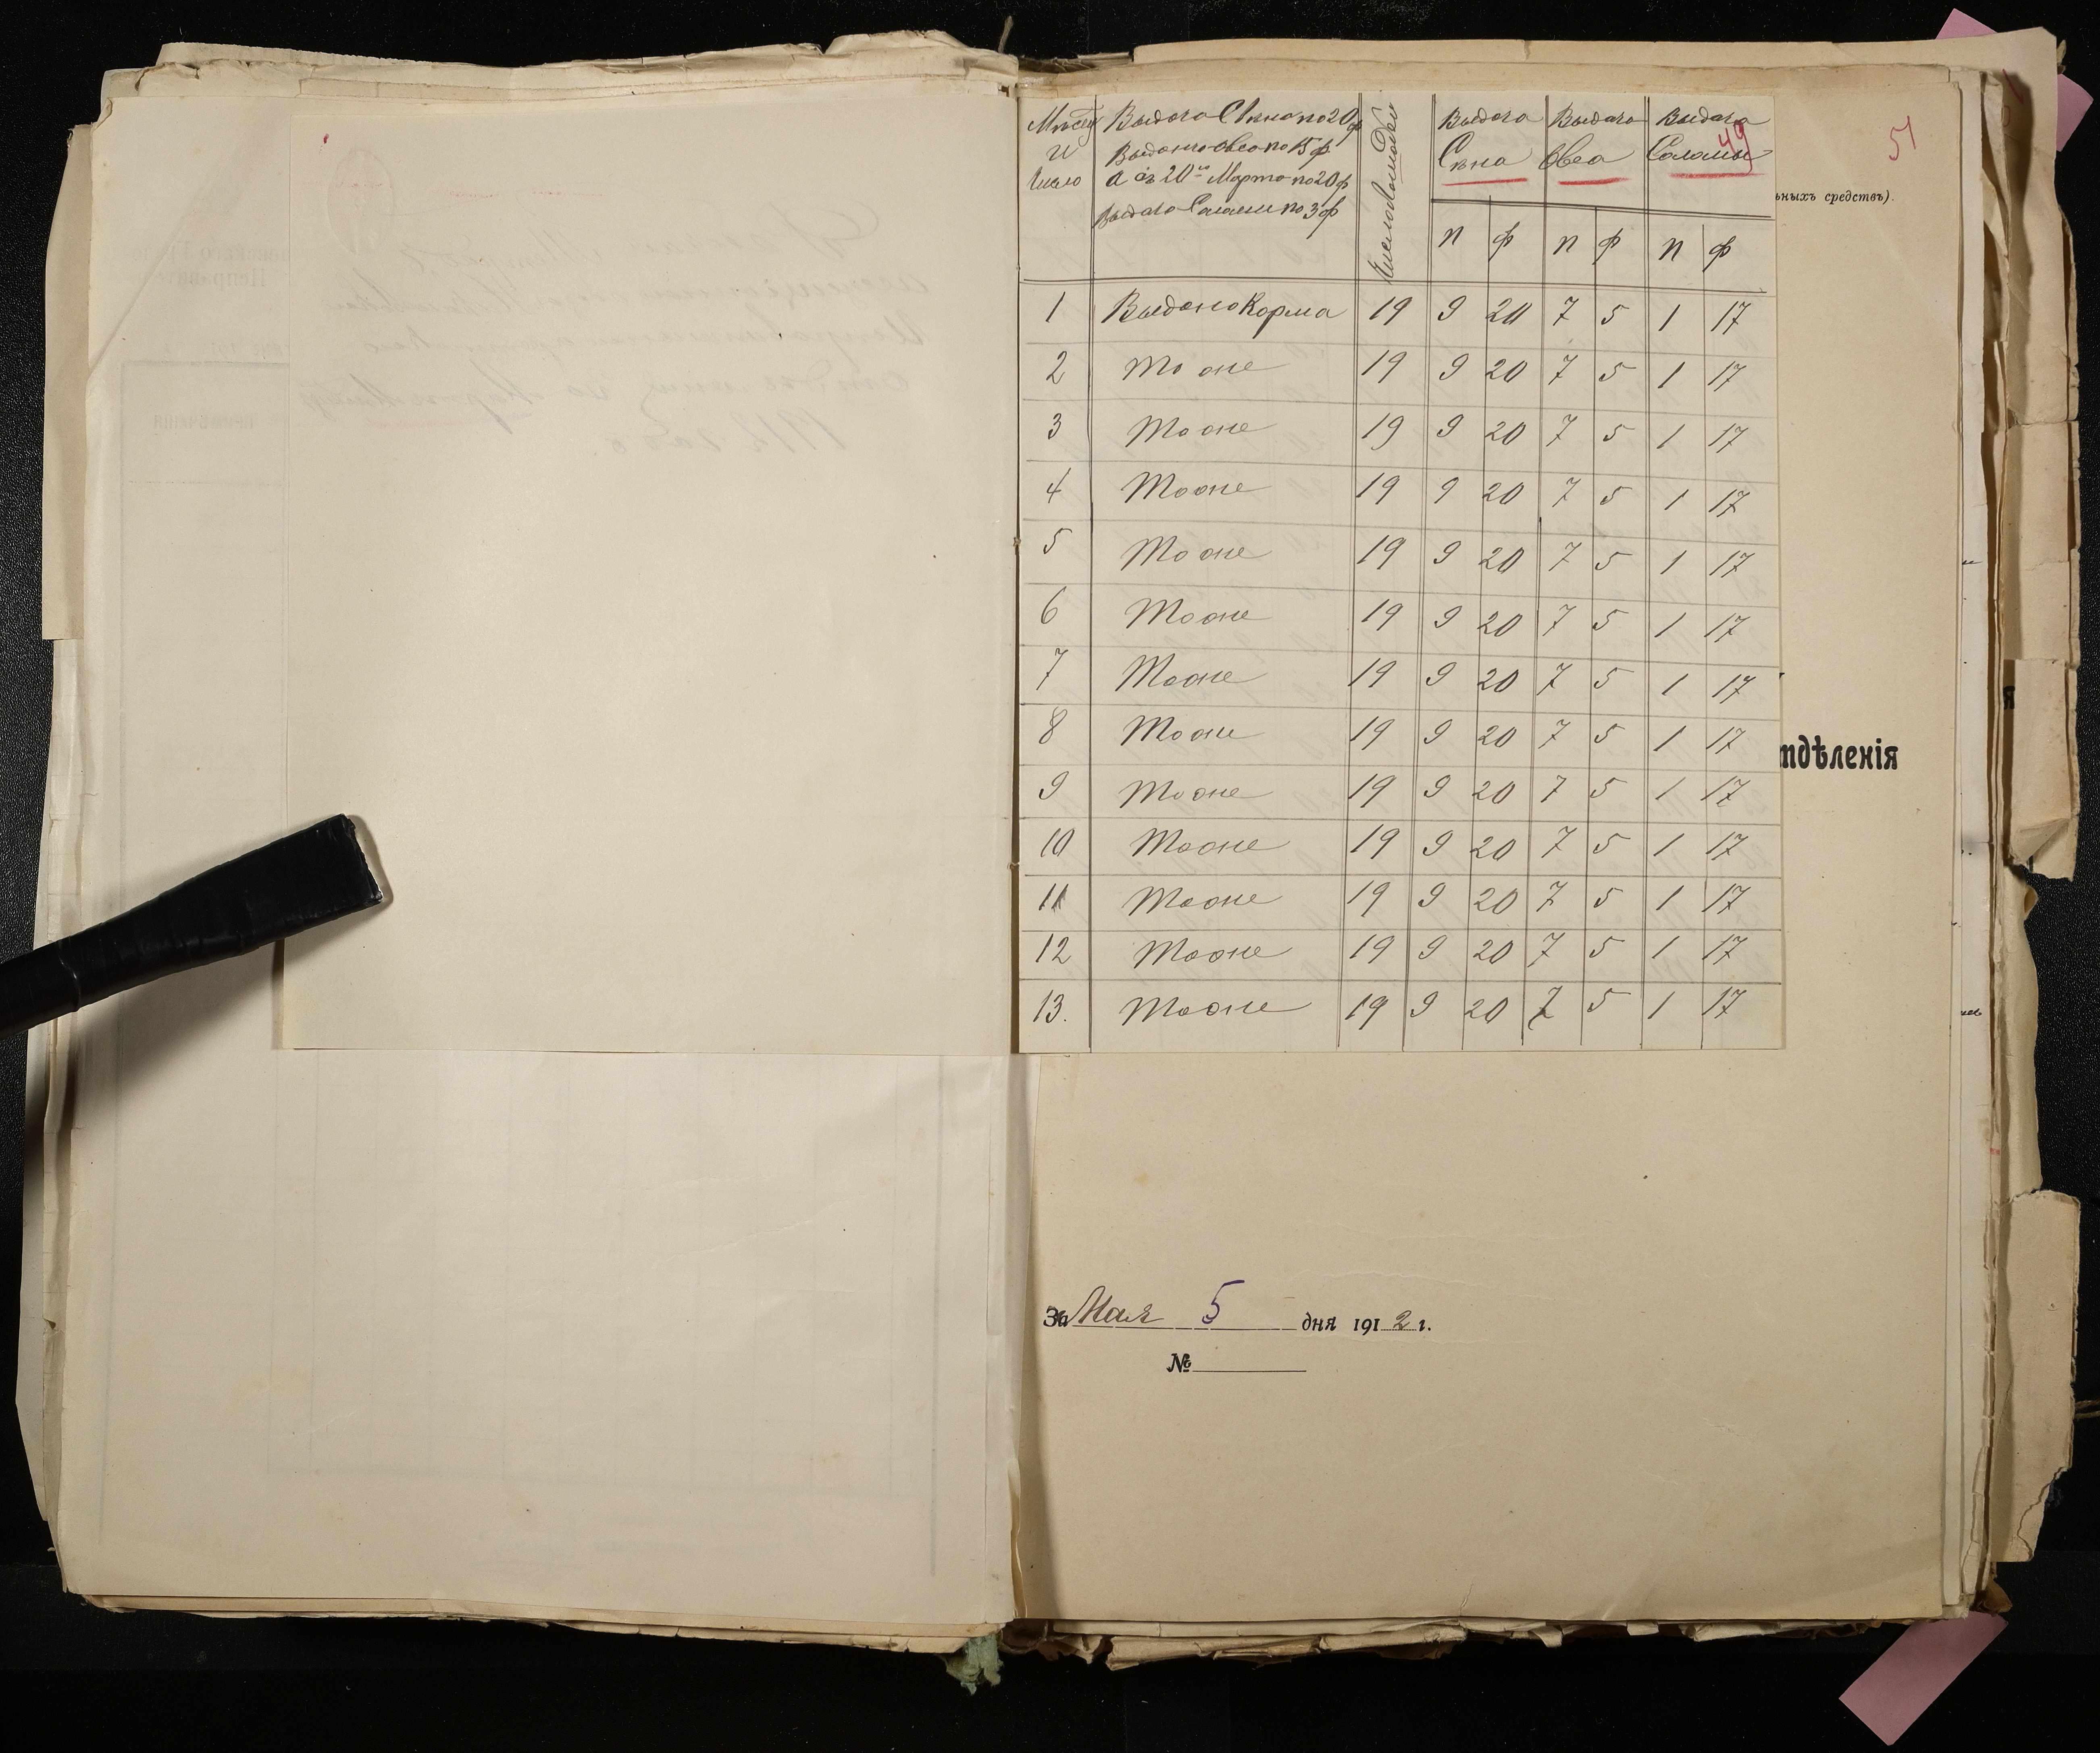 51
49
Мѣсяц и Число
Выдача Сѣна по 20 ф
Выдача овса по 15 ф.
а съ 20го Марта по 20 ф
Выдача Соломы по 3 ф
Число Лошадей
Выдача Сѣна
Выдача Овса
Выдача Соломы
п ф п ф п ф
1 Выдано Корма 19 9 20 7 5 1 17
2 То оне 19 9 20 7 5 1 17
3 То оне 19 9 20 7 5 1 17
4 То оне 19 9 20 7 5 1 17
5 То оне 19 9 20 7 5 1 17
6 То оне 19 9 20 7 5 1 17
7 То оне 19 9 20 7 5 1 17
8 То оне 19 9 20 7 5 1 17
9 То оне 19 9 20 7 5 1 17
10 То оне 19 9 20 7 5 1 17
11 То оне 19 9 20 7 5 1 17
12 То оне 19 9 20 7 5 1 17
13. То оне 19 9 20 7 5 1 17
ьныхъ средствъ).
тдѣленія
За Мая 5 дня 1912 г.
№